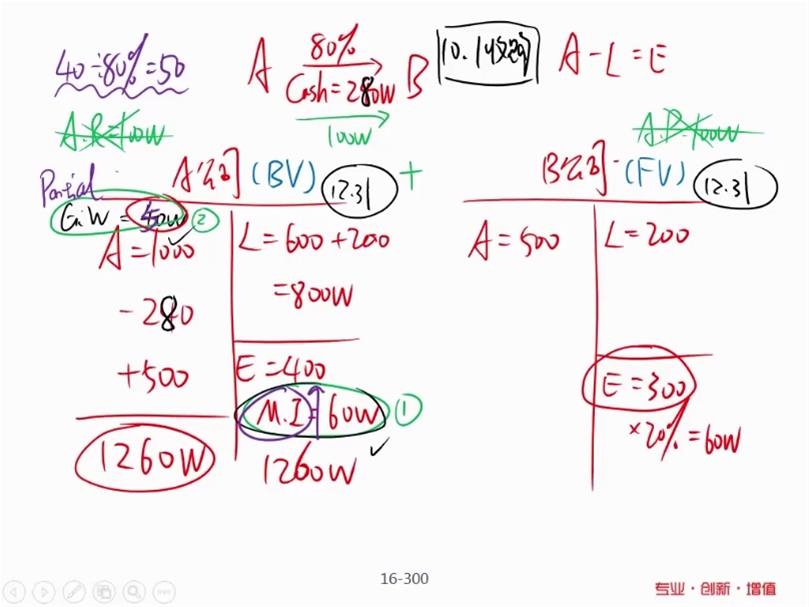 40÷80%=50
A 80% Cash=280W B
100W
10.1
A-L=E
A.R=100W
A.P=100W
Partial
A公司 (BV) 12.31 +
B公司 (FV) 12.31
G.W = 40W ②
A=1000
-280
+500
1260W
L=600+200
=800W
E=400
M.I=60W ①
1260W
A=500
L=200
E=300
×20%=60W
16-300
专业·创新·增值